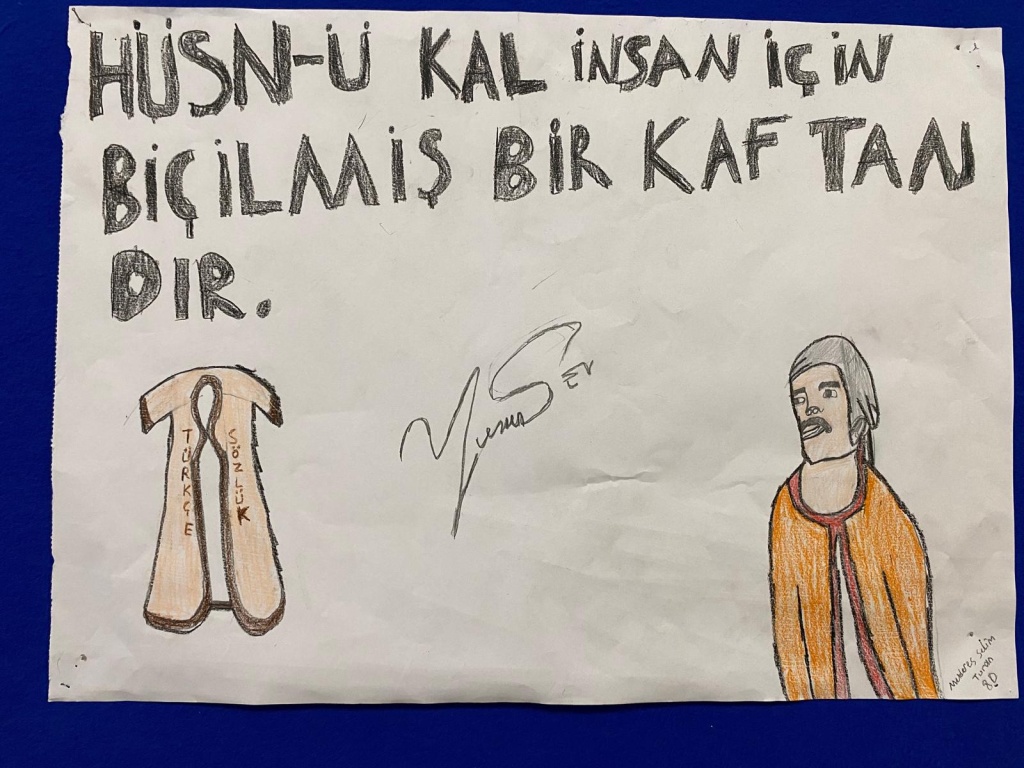 HÜSN-Ü KAL İNSAN İÇİN
BİÇİLMİŞ BİR KAFTAN
DIR.
TÜRKÇE
SÖZLÜK
Menderes Selim
Turan
8D